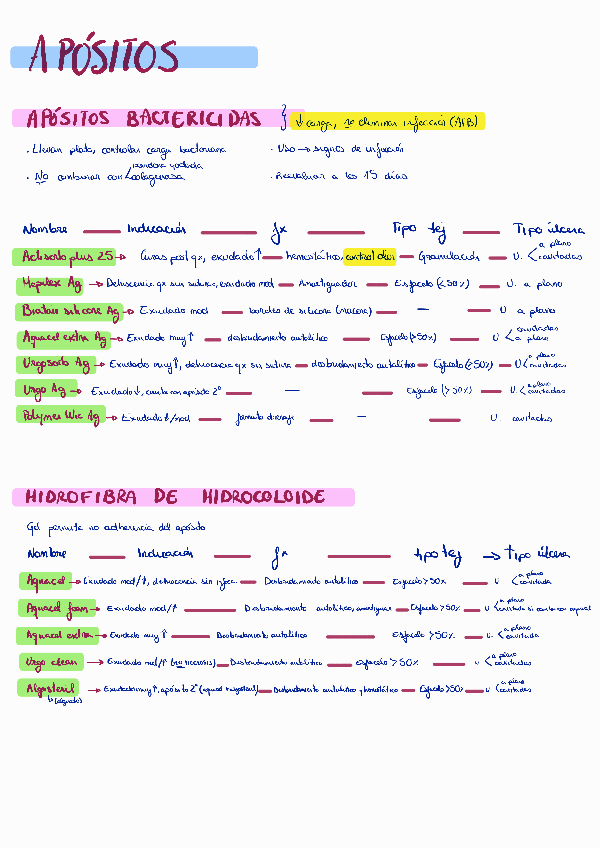 APÓSITOS
APÓSITOS BACTERICIDAS } ↓ carga, no eliminar infección (ATB)
· Llevan plata, controlar carga bacteriana
· Uso → signos de infección
· No combinar con < povidona yodada colagenasa
· Reevaluar a los 15 días
Nombre — Indicación — fx — Tipo tej — Tipo úlcera
Actisorb plus 25 → Curas post qx, exudado ↑ — hemostático, control olor — Granulación — U. < a plano cavitadas
Mepilex Ag → Dehiscencia qx sin sutura, exudado mod — Amortiguador — Esfacelo (<50%) — U. a plano
Biatain silicone Ag → Exudado mod — bordes de silicona — — — U a plano
Aquacel extra Ag → Exudado muy ↑ — desbridamiento autolítico — Esfacelo (>50%) — U < cavitadas a plano
Urgosorb Ag → Exudado muy ↑, dehiscencia qx sin sutura — desbridamiento autolítico — Esfacelo (≥50%) — U < a plano cavitadas
Urgo Ag → Exudado ↓, con apósito 2º — — — Esfacelo (>50%) — U. < a plano cavitadas
Polymem Wic Ag → Exudado ↓/mod — — — — U. cavitadas
HIDROFIBRA DE HIDROCOLOIDE
Gel permite no adherencia del apósito
Nombre — Indicación — fx — tipo tej → Tipo úlcera
Aquacel → Exudado mod/↑, dehiscencia sin infecc. — Desbridamiento autolítico — Esfacelo >50% — U < a plano cavitada
Aquacel foam → Exudado mod/↑ — Desbridamiento autolítico, amortiguar — Esfacelo >50% — U < a plano cavitada si combinas aquacel
Aquacel extra → Exudado muy ↑ — Desbridamiento autolítico — Esfacelo >50% — U. < a plano cavitada
Urgo clean → Exudado mod/↑ (no necrosis) — Desbridamiento autolítico — Esfacelo >50% — U < a plano cavitadas
Algosteril → Exudado muy ↑, apósito 2º — Desbridamiento autolítico y hemostático — Esfacelo >50% — U < a plano cavitadas
↳ (alginato)